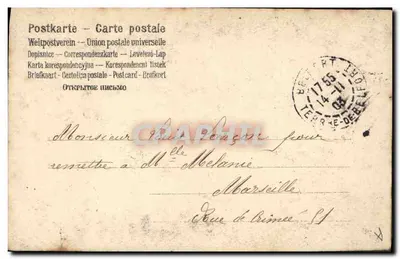 Postkarte – Carte postale
Weltpostverein – Union postale universelle
Dopisnice – Correspondenzkarte – Levelező-Lap
Karta korespondencyjna – Korespondenční lístek
Briefkaart – Cartolina postale – Postcard – Brefkort
Открытое письмо
BELFORT
17 55
14-11
03
TERRRE-DE-BELFORT
Monsieur Louis pour
remettre à Melle Melanie
Marseille
Rue de Crimée 51